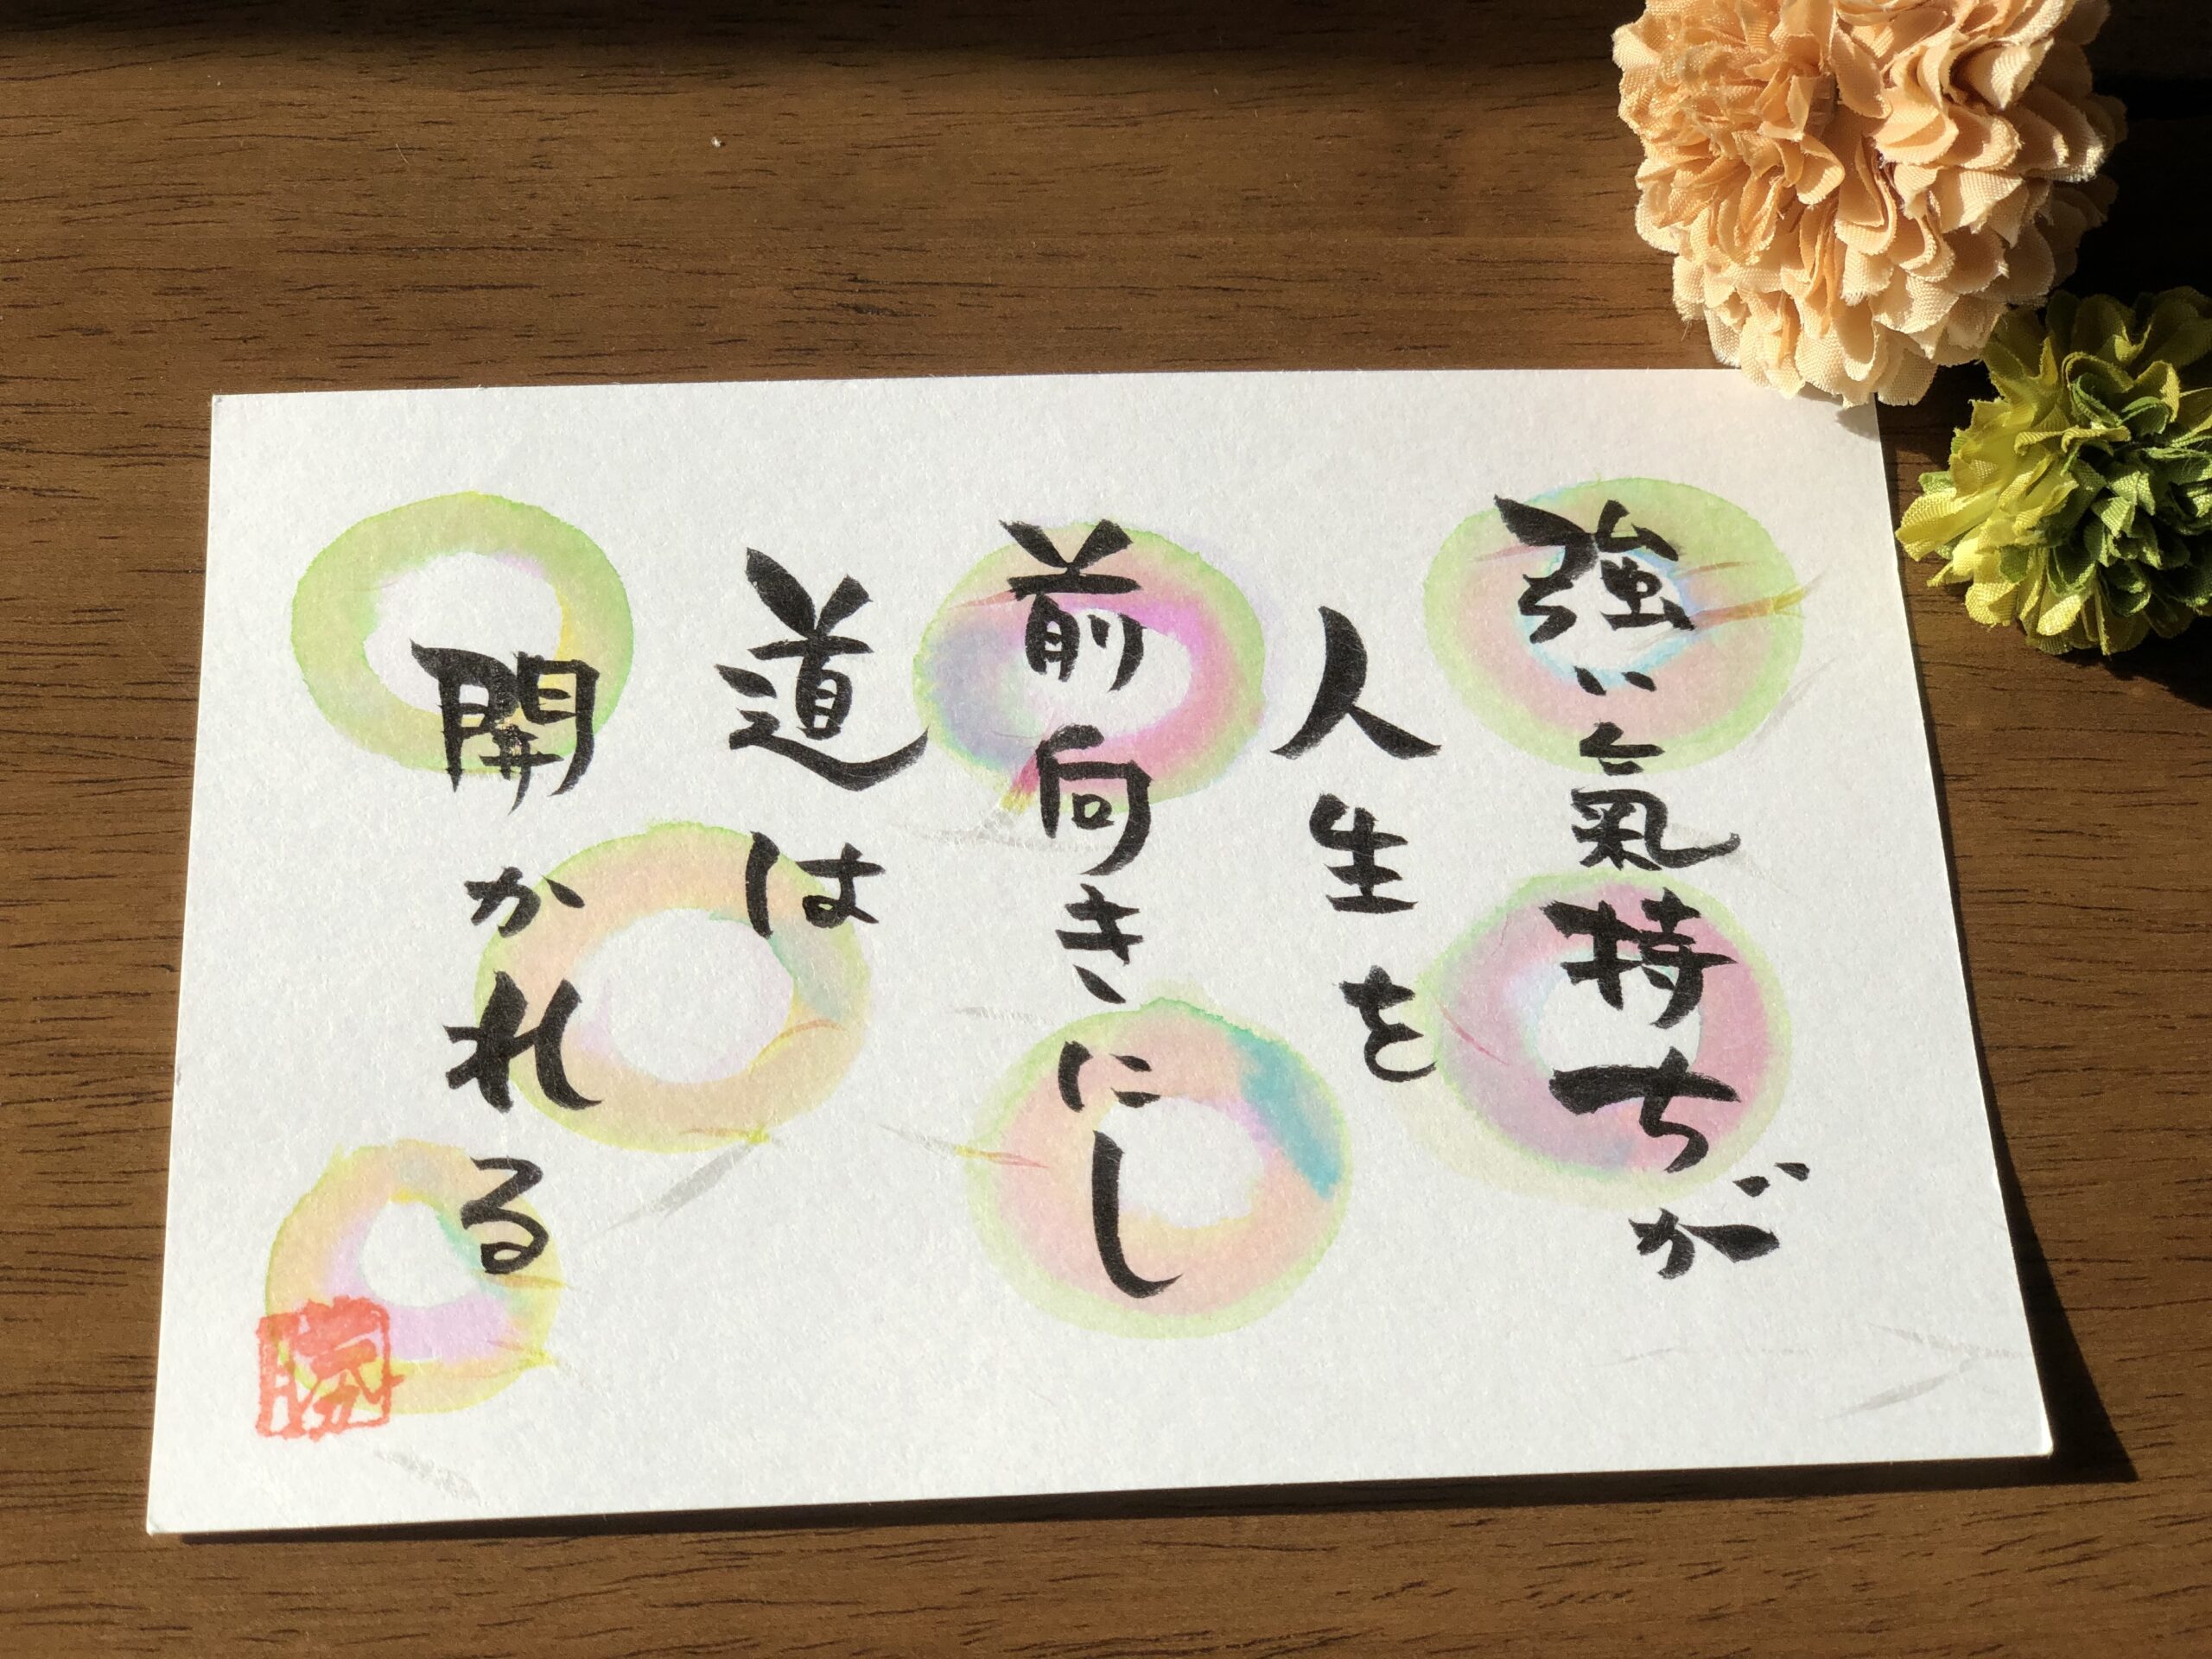 強い氣持ちが
人生を
前向きにし
道は
開かれる
勝